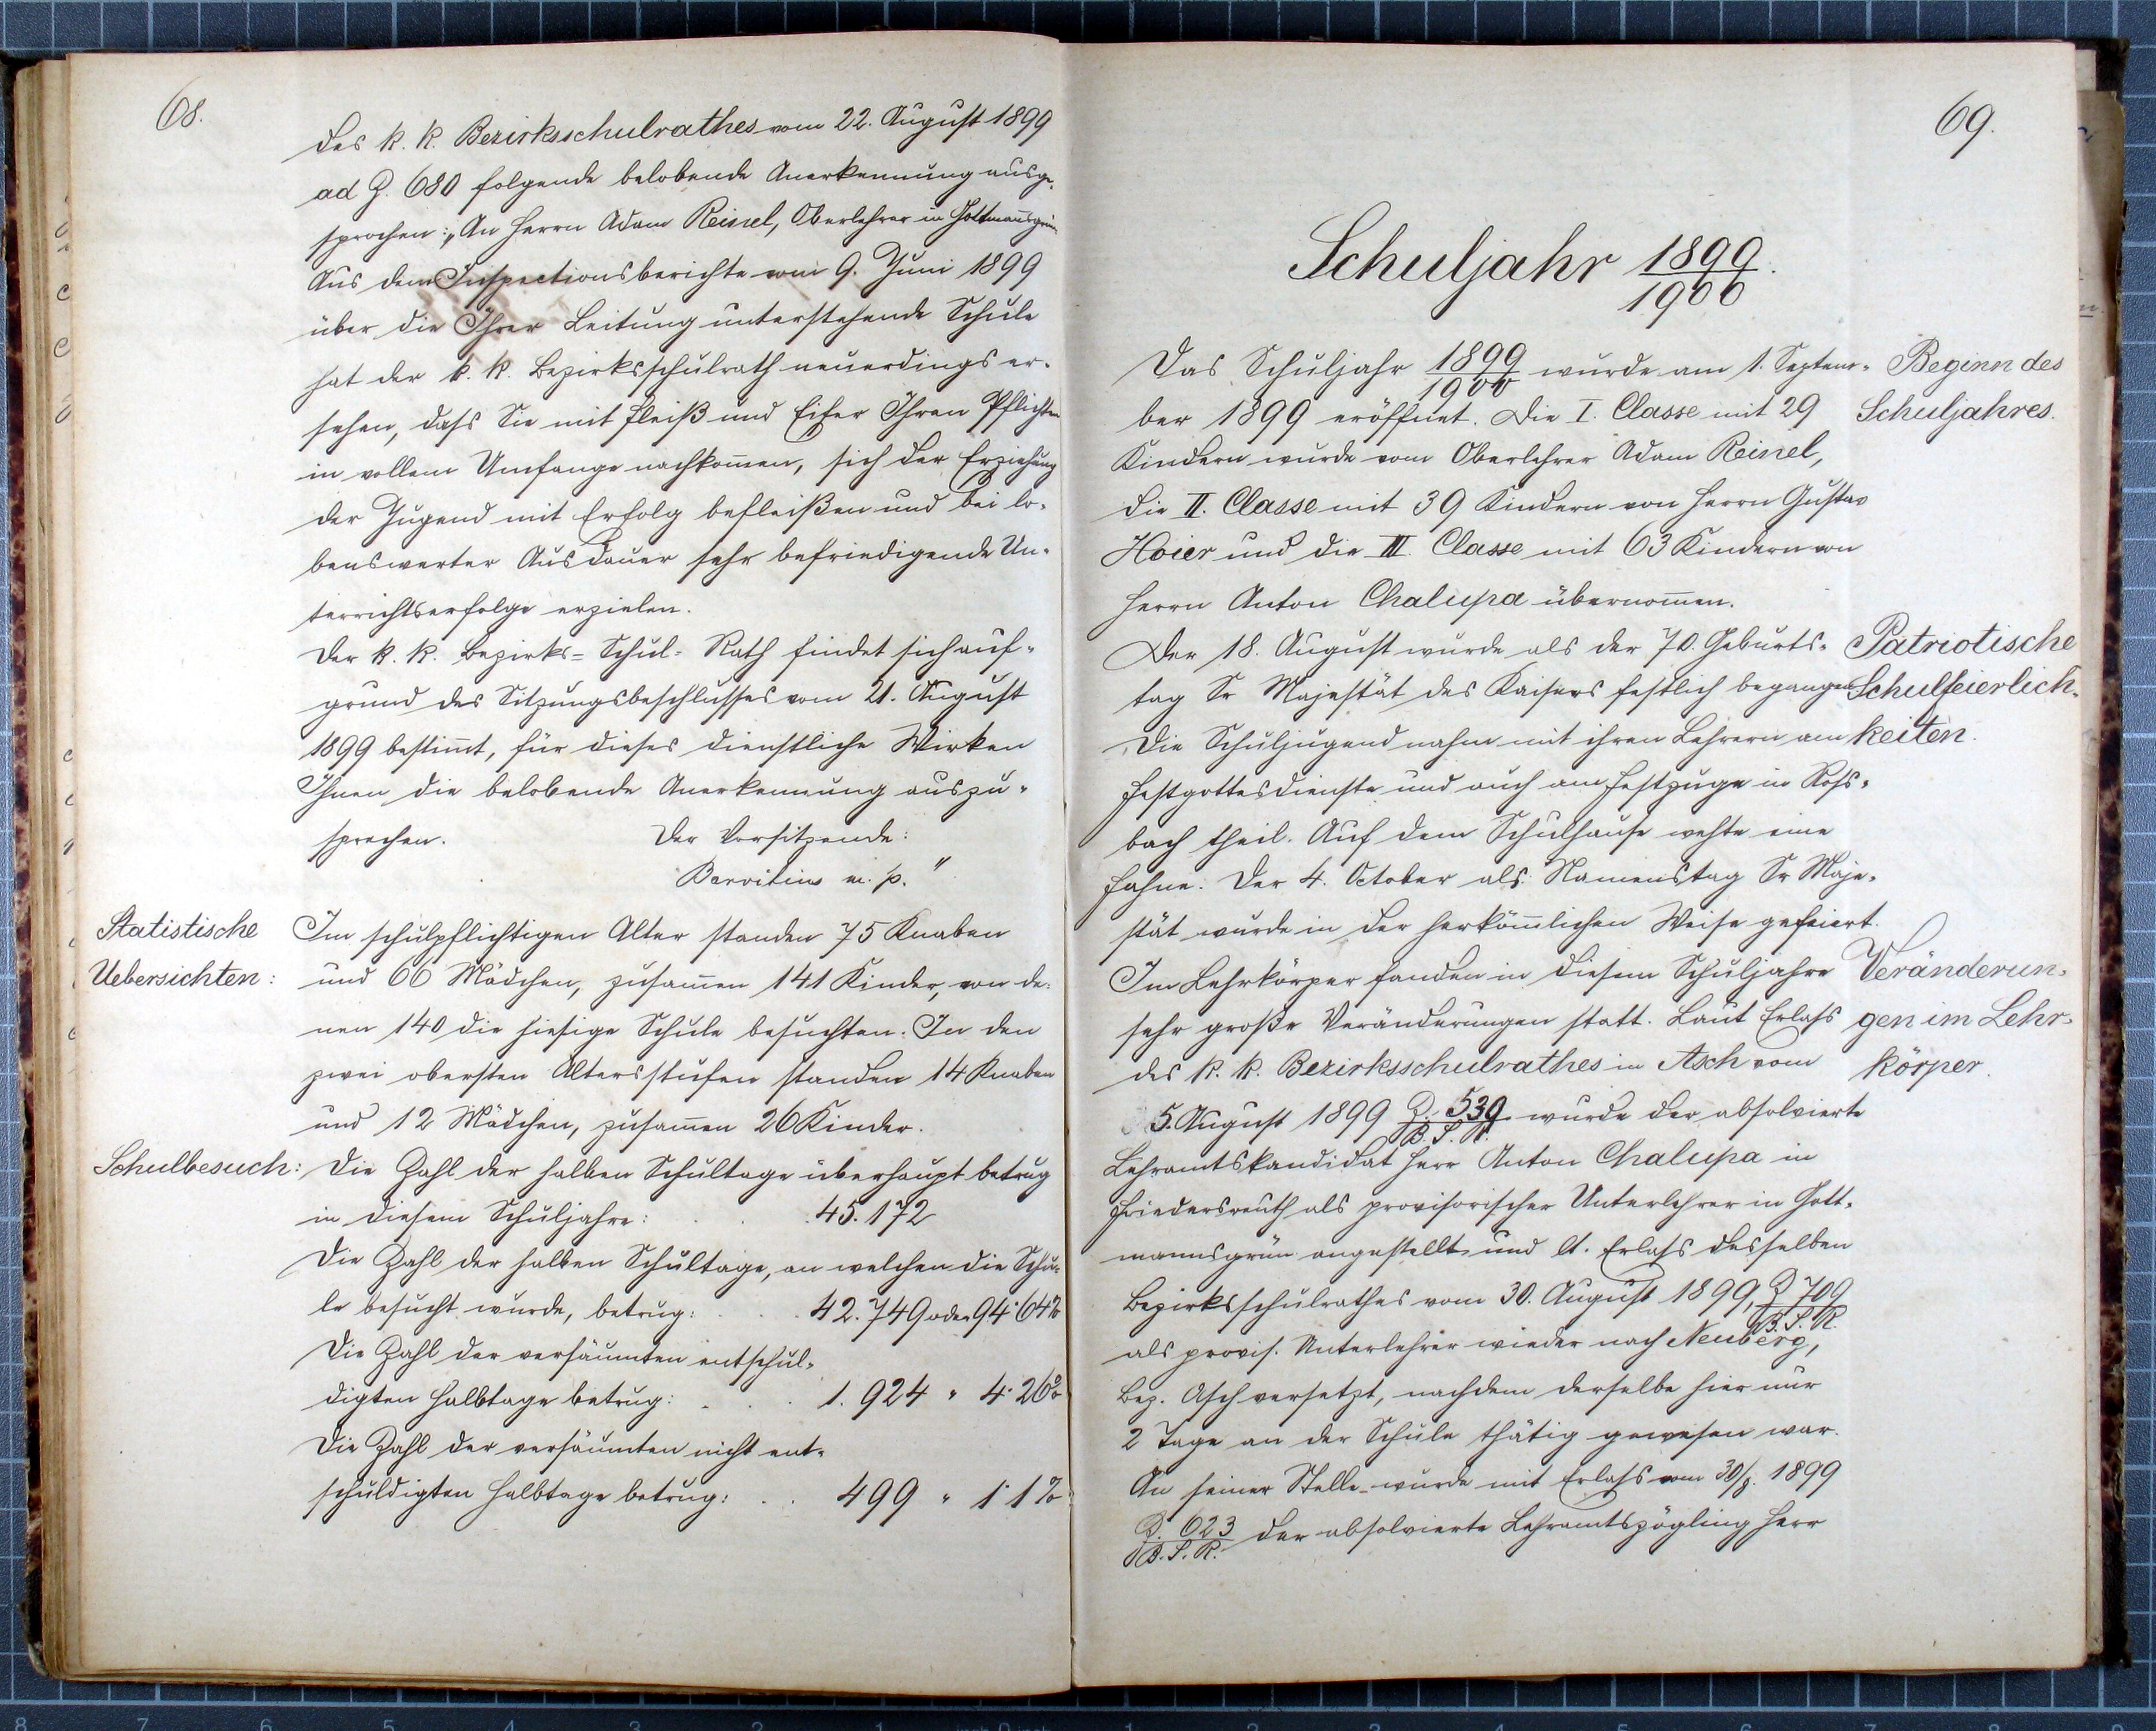 68.
des k. k. Bezirksschulrathes vom 22. August 1899
ad Z. 680 folgende belobende Anerkennung ausge-
sprochen: „An Herrn Adam Reinel, Oberlehrer in Gottmannsgrün.
Aus dem Inspectionsberichte vom 9. Juni 1899
über die Ihrer Leitung unterstehende Schule
hat der k. k. Bezirksschulrath neuerdings er-
sehen, dass Sie mit Fleiß und Eifer Ihren Pflichten
in vollem Umfange nachkom̄en, sich der Erziehung
der Jugend mit Erfolg befleißen und bei lo-
benswerter Ausdauer sehr befriedigende Un-
terrichtserfolge erzielen.
Der k. k. Bezirks-Schul-Rath findet sich auf-
grund des Sitzungsbeschlusses vom 21. August
1899 bestim̄t, für dieses dienstliche Wirken
Ihnen die belobende Anerkennung auszu-
sprechen. Der Vorsitzende:
Bervitius m. p."
Statistische
Uebersichten:
Im schulpflichtigen Alter standen 75 Knaben
und 66 Mädchen, zusam̄en 141 Kinder, von de-
nen 140 die hiesige Schule besuchten. In den
zwei obersten Altersstufen standen 14 Knaben
und 12 Mädchen, zusam̄en 26 Kinder.
Schulbesuch:
Die Zahl der halben Schultage überhaupt betrug
in diesem Schuljahre: . . . 45.172
Die Zahl der halben Schultage, an welchen die Schu-
le besucht wurde, betrug: . . . 42.749 oder 94·64%
Die Zahl der versäumten entschul-
digten Halbtage betrug: . . . 1.924 " 4·26%
Die Zahl der versäumten nicht ent-
schuldigten Halbtage betrug: . . 499 " 1·1%
69.
Schuljahr 1899/1900.
Beginn des
Schuljahres.
Das Schuljahr 1899/1900 wurde am 1. Septem-
ber 1899 eröffnet. Die I. Classe mit 29
Kindern wurde vom Oberlehrer Adam Reinel,
die II. Classe mit 39 Kindern von Herrn Gustav
Hoier und die III. Classe mit 63 Kindern von
Herrn Anton Chalupa übernom̄en.
Patriotische
Schulfeierlich-
keiten.
Der 18. August wurde als der 70. Geburts-
tag Sr Majestät des Kaisers festlich begangen
Die Schuljugend nahm mit ihren Lehrern am
Festgottesdienste und auch am Festzuge in Ross-
bach theil. Auf dem Schulhause wehte eine
Fahne. Der 4. October als Namenstag Sr Maje-
stät wurde in der herköm̄lichen Weise gefeiert.
Veränderun-
gen im Lehr-
körper.
Im Lehrkörper fanden in diesem Schuljahre
sehr große Veränderungen statt. Laut Erlass
des k. k. Bezirksschulrathes in Asch vom
5. August 1899 Z. 539/B. S. R. wurde der absolvierte
Lehramtskandidat Herr Anton Chalupa in
Friedersreuth als provisorischer Unterlehrer in Gott-
mannsgrün angestellt und lt. Erlass desselben
Bezirksschulrathes vom 30. August 1899, Z 709/B. S. R.
als provis. Unterlehrer wieder nach Neuberg,
Bez. Asch versetzt, nachdem derselbe hier nur
2 Tage an der Schule thätig gewesen war.
An seiner Stelle wurde mit Erlass vom 30/8. 1899
Z. 623/B. S. R. der absolvierte Lehramtszögling Herr